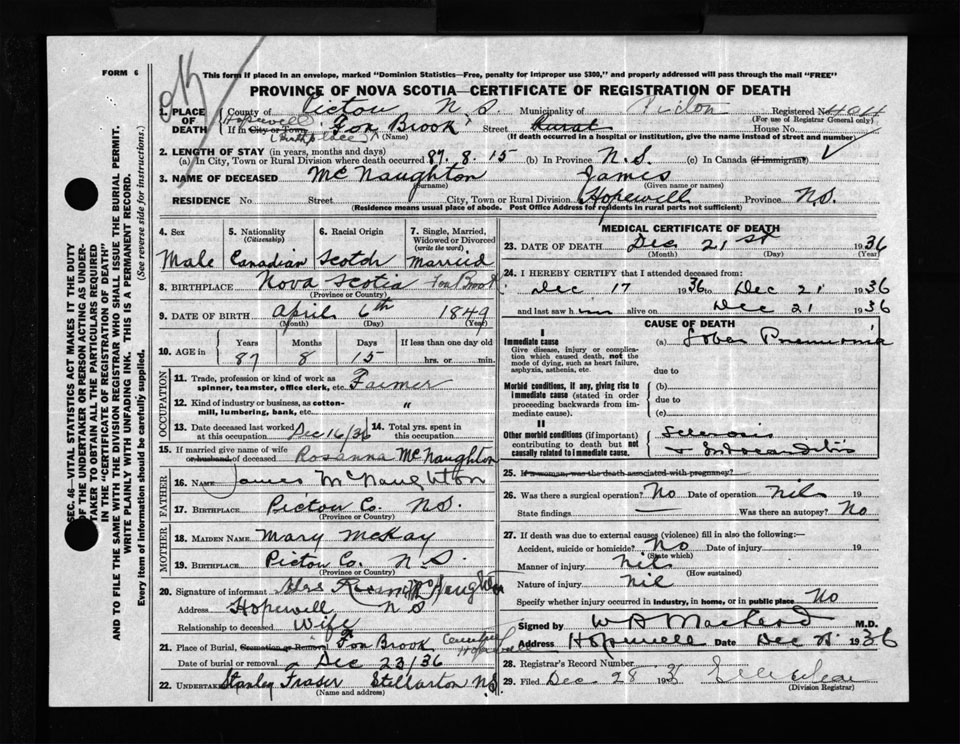 FORM 6
This form if placed in an envelope, marked "Dominion Statistics—Free, penalty for improper use $300," and properly addressed will pass through the mail "FREE"
PROVINCE OF NOVA SCOTIA—CERTIFICATE OF REGISTRATION OF DEATH
1. PLACE OF DEATH County of Pictou N S. Municipality of Pictou Registered No. 404
(For use of Registrar General only)
Hopewell
If in City or Town Fox Brook Street Rural House No.
(Name) (If death occurred in a hospital or institution, give the name instead of street and number)
2. LENGTH OF STAY (in years, months and days)
(a) In City, Town or Rural Division where death occurred 87. 8. 15 (b) In Province N.S. (c) In Canada (if immigrant)
3. NAME OF DECEASED McNaughton James
(Surname) (Given name or names)
RESIDENCE No. Street City, Town or Rural Division Hopewell Province NS.
(Residence means usual place of abode. Post Office Address for residents in rural parts not sufficient)
4. Sex 5. Nationality (Citizenship) 6. Racial Origin 7. Single, Married, Widowed or Divorced (write the word)
Male Canadian Scotch Married
8. BIRTHPLACE Nova Scotia Fox Brook
(Province or Country)
9. DATE OF BIRTH April 6th 1849
(Month) (Day) (Year)
10. AGE in Years Months Days If less than one day old
87 8 15 hrs. or min.
OCCUPATION
11. Trade, profession or kind of work as spinner, teamster, office clerk, etc. Farmer
12. Kind of industry or business, as cotton-mill, lumbering, bank, etc. "
13. Date deceased last worked at this occupation Dec 16/36 14. Total yrs. spent in this occupation
15. If married give name of wife or husband of deceased Rosanna McNaughton
FATHER
16. NAME James McNaughton
17. BIRTHPLACE Pictou Co. NS.
(Province or Country)
MOTHER
18. MAIDEN NAME Mary McKay
19. BIRTHPLACE Pictou Co. N S
(Province or Country)
20. Signature of informant Mrs McNaughton
Address Hopewell N S
Relationship to deceased Wife
21. Place of Burial, Cremation or Removal Fox Brook Hopewell
Date of burial or removal Dec 23/36
22. UNDERTAKER Stanley Fraser Stellarton N.S.
(Name and address)
MEDICAL CERTIFICATE OF DEATH
23. DATE OF DEATH Dec 21st 1936
(Month) (Day) (Year)
24. I HEREBY CERTIFY that I attended deceased from:
Dec 17 1936 to Dec 21 1936
and last saw him alive on Dec 21 1936
CAUSE OF DEATH
I
Immediate cause (a) Lobar Pneumonia
Give disease, injury or complication which caused death, not the mode of dying, such as heart failure, asphyxia, asthenia, etc.
due to
Morbid conditions, if any, giving rise to immediate cause (stated in order proceeding backwards from immediate cause). (b)
due to
(c)
II
Other morbid conditions (if important) contributing to death but not causally related to immediate cause.
25. If a woman, was the death associated with pregnancy?
26. Was there a surgical operation? No Date of operation nil 19
State findings — Was there an autopsy? No
27. If death was due to external causes (violence) fill in also the following:—
Accident, suicide or homicide? No Date of injury 19
(State which)
Manner of injury nil
(How sustained)
Nature of injury nil
Specify whether injury occurred in industry, in home, or in public place No
Signed by M.D.
Address Hopewell Date Dec 21 1936
28. Registrar's Record Number
29. Filed Dec 28 1936
(Division Registrar)
SEC. 46—VITAL STATISTICS ACT MAKES IT THE DUTY
OF THE UNDERTAKER OR PERSON ACTING AS UNDER-
TAKER TO OBTAIN ALL THE PARTICULARS REQUIRED
IN THE "CERTIFICATE OF REGISTRATION OF DEATH"
AND TO FILE THE SAME WITH THE DIVISION REGISTRAR WHO SHALL ISSUE THE BURIAL PERMIT.
WRITE PLAINLY WITH UNFADING INK. THIS IS A PERMANENT RECORD.
Every item of information should be carefully supplied. (See reverse side for instructions.)